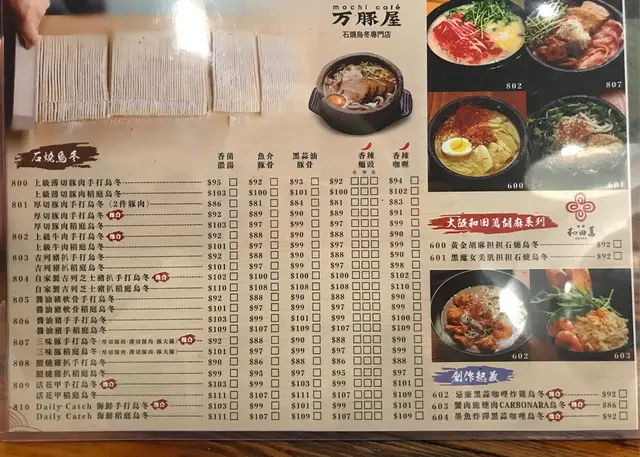 mochi café
万豚屋
石燒烏冬專門店
802
807
600
601
石燒烏冬
香菌濃湯 魚介豚骨 黑蒜油豚骨 香辣麵豉 香辣咖喱
小 中 大
800 上級薄切豚肉手打烏冬 $95 $92 $93 $92 $94
上級薄切豚肉稻庭烏冬 $103 $100 $101 $100 $102
801 厚切豚肉手打烏冬 (2件豚肉) $86 $81 $84 $81 $83
厚切豚肉手打烏冬 推介 $92 $88 $90 $89 $91
厚切豚肉稻庭烏冬 $103 $97 $99 $97 $99
802 上級牛肉手打烏冬 推介 $92 $88 $90 $88 $90
上級牛肉稻庭烏冬 $101 $97 $99 $97 $99
803 吉列豬扒手打烏冬 $92 $88 $90 $88 $90
吉列豬扒稻庭烏冬 $101 $97 $99 $97 $99
804 自家製吉列芝士豬扒手打烏冬 推介 $102 $100 $100 $100 $102
自家製吉列芝士豬扒稻庭烏冬 $110 $108 $108 $108 $110
805 醬油豬軟骨手打烏冬 $92 $88 $90 $88 $90
醬油豬軟骨稻庭烏冬 $101 $97 $99 $97 $99
806 醬油豬手手打烏冬 $103 $99 $101 $99 $101
醬油豬手稻庭烏冬 $109 $107 $109 $107 $109
807 三味豚手打烏冬 (厚切豚肉·薄切豚肉·豚大腸) 推介 $92 $88 $90 $88 $90
三味豚稻庭烏冬 (厚切豚肉·薄切豚肉·豚大腸) $101 $97 $99 $97 $99
808 照燒雞扒手打烏冬 $90 $86 $88 $86 $88
照燒雞扒稻庭烏冬 $101 $97 $99 $97 $99
809 活花甲手打烏冬 推介 $103 $99 $101 $99 $101
活花甲稻庭烏冬 $111 $107 $109 $107 $109
810 Daily Catch 海鮮手打烏冬 推介 $103 $99 $101 $99 $101
Daily Catch 海鮮稻庭烏冬 $111 $107 $109 $107 $109
大阪和田萬胡麻系列
和田萬
600 黃金胡麻担担石燒烏冬 $92
601 黑魔女美肌担担石燒烏冬 $92
602
603
創作起義
602 惡魔黑蒜咖喱炸雞烏冬 推介 $92
603 蟹肉脆煙肉CARBONARA烏冬 推介 $86
604 墨魚炸彈黑蒜咖喱烏冬 $92